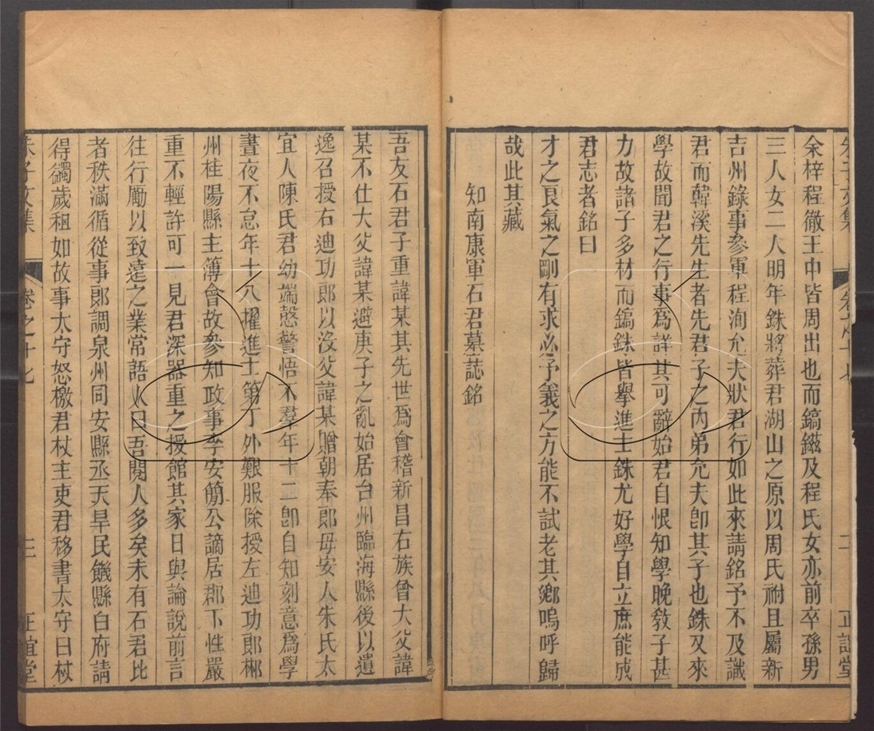 余梓程徹王中皆周出也而鎬鎡及程氏女亦前卒孫男
三人女二人明年銖將葬君湖山之原以周氏祔且屬新
吉州錄事參軍程洵允夫狀君行如此來請銘予不及識
君而韓溪先生者先君子之內弟允夫卽其子也銖又來
學故聞君之行事爲詳其可辭始君自恨知學晚敎子甚
力故諸子多材而鎬銖皆舉進士銖尤好學自立庶能成
君志者銘曰
才之良氣之剛有求必予義之方能不試老其鄉嗚呼歸
哉此其藏
知南康軍石君墓誌銘
吾友石君子重諱某其先世爲會稽新昌右族曾大父諱
某不仕大父諱某避庚子之亂始居台州臨海縣後以遺
逸召授右迪功郎以沒父諱某贈朝奉郎母安人朱氏太
宜人陳氏君幼端慤警悟不羣年十二卽自知刻意爲學
晝夜不怠年十八擢進士第丁外艱服除授左迪功郎郴
州桂陽縣主簿會故參知政事李安簡公謫居郡下性嚴
重不輕許可一見君深器重之授館其家日與論說前言
往行勵以致遠之業常語人曰吾閱人多矣未有石君比
者秩滿循從事郎調泉州同安縣丞天旱民饑縣白府請
得蠲歲租如故事太守怒檄君杖主吏君移書太守曰杖
朱子文集
卷之十七
三
正誼堂